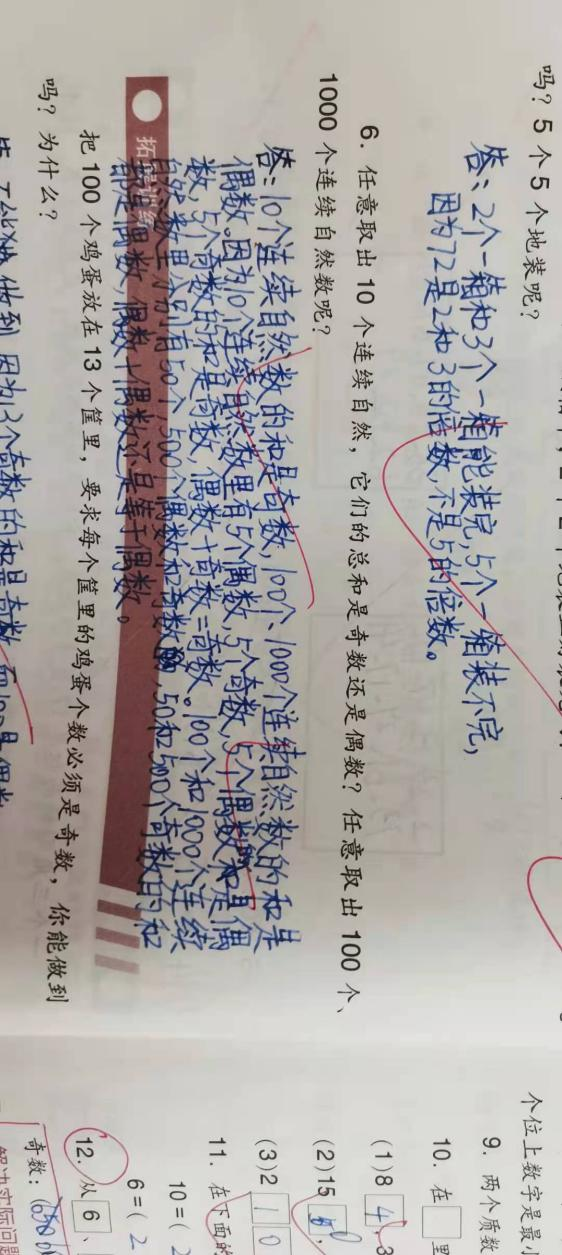 吗？5个5个地装呢？
答：2个一箱和3个一箱能装完，5个一箱装不完，
因为72是2和3的倍数，不是5的倍数。
6. 任意取出 10 个连续自然，它们的总和是奇数还是偶数？任意取出 100 个、
1000 个连续自然数呢？
答：10个连续自然数的和是奇数，100个、1000个连续自然数的和是
偶数。因为10个连续自然数里有5个偶数，5个奇数，5个偶数和是偶
数，5个奇数的和是奇数，偶数+奇数=奇数。100个和1000个连续
自然数里分别有50个、500个偶数和奇数，50和500个奇数的和
都是偶数，偶数+偶数还是等于偶数。
拓
把 100 个鸡蛋放在 13 个筐里，要求每个筐里的鸡蛋个数必须是奇数，你能做到
吗？为什么？
做到，因为13个奇数的和是奇数，而100是偶数
个位上数字是最小
9. 两个质数
10. 在□里
(1)8 4，3
(2)15
(3)2 1 0
11. 在下面的
10=( 2
6=( 2
12. 从 6、
奇数：(650
解决实际问题